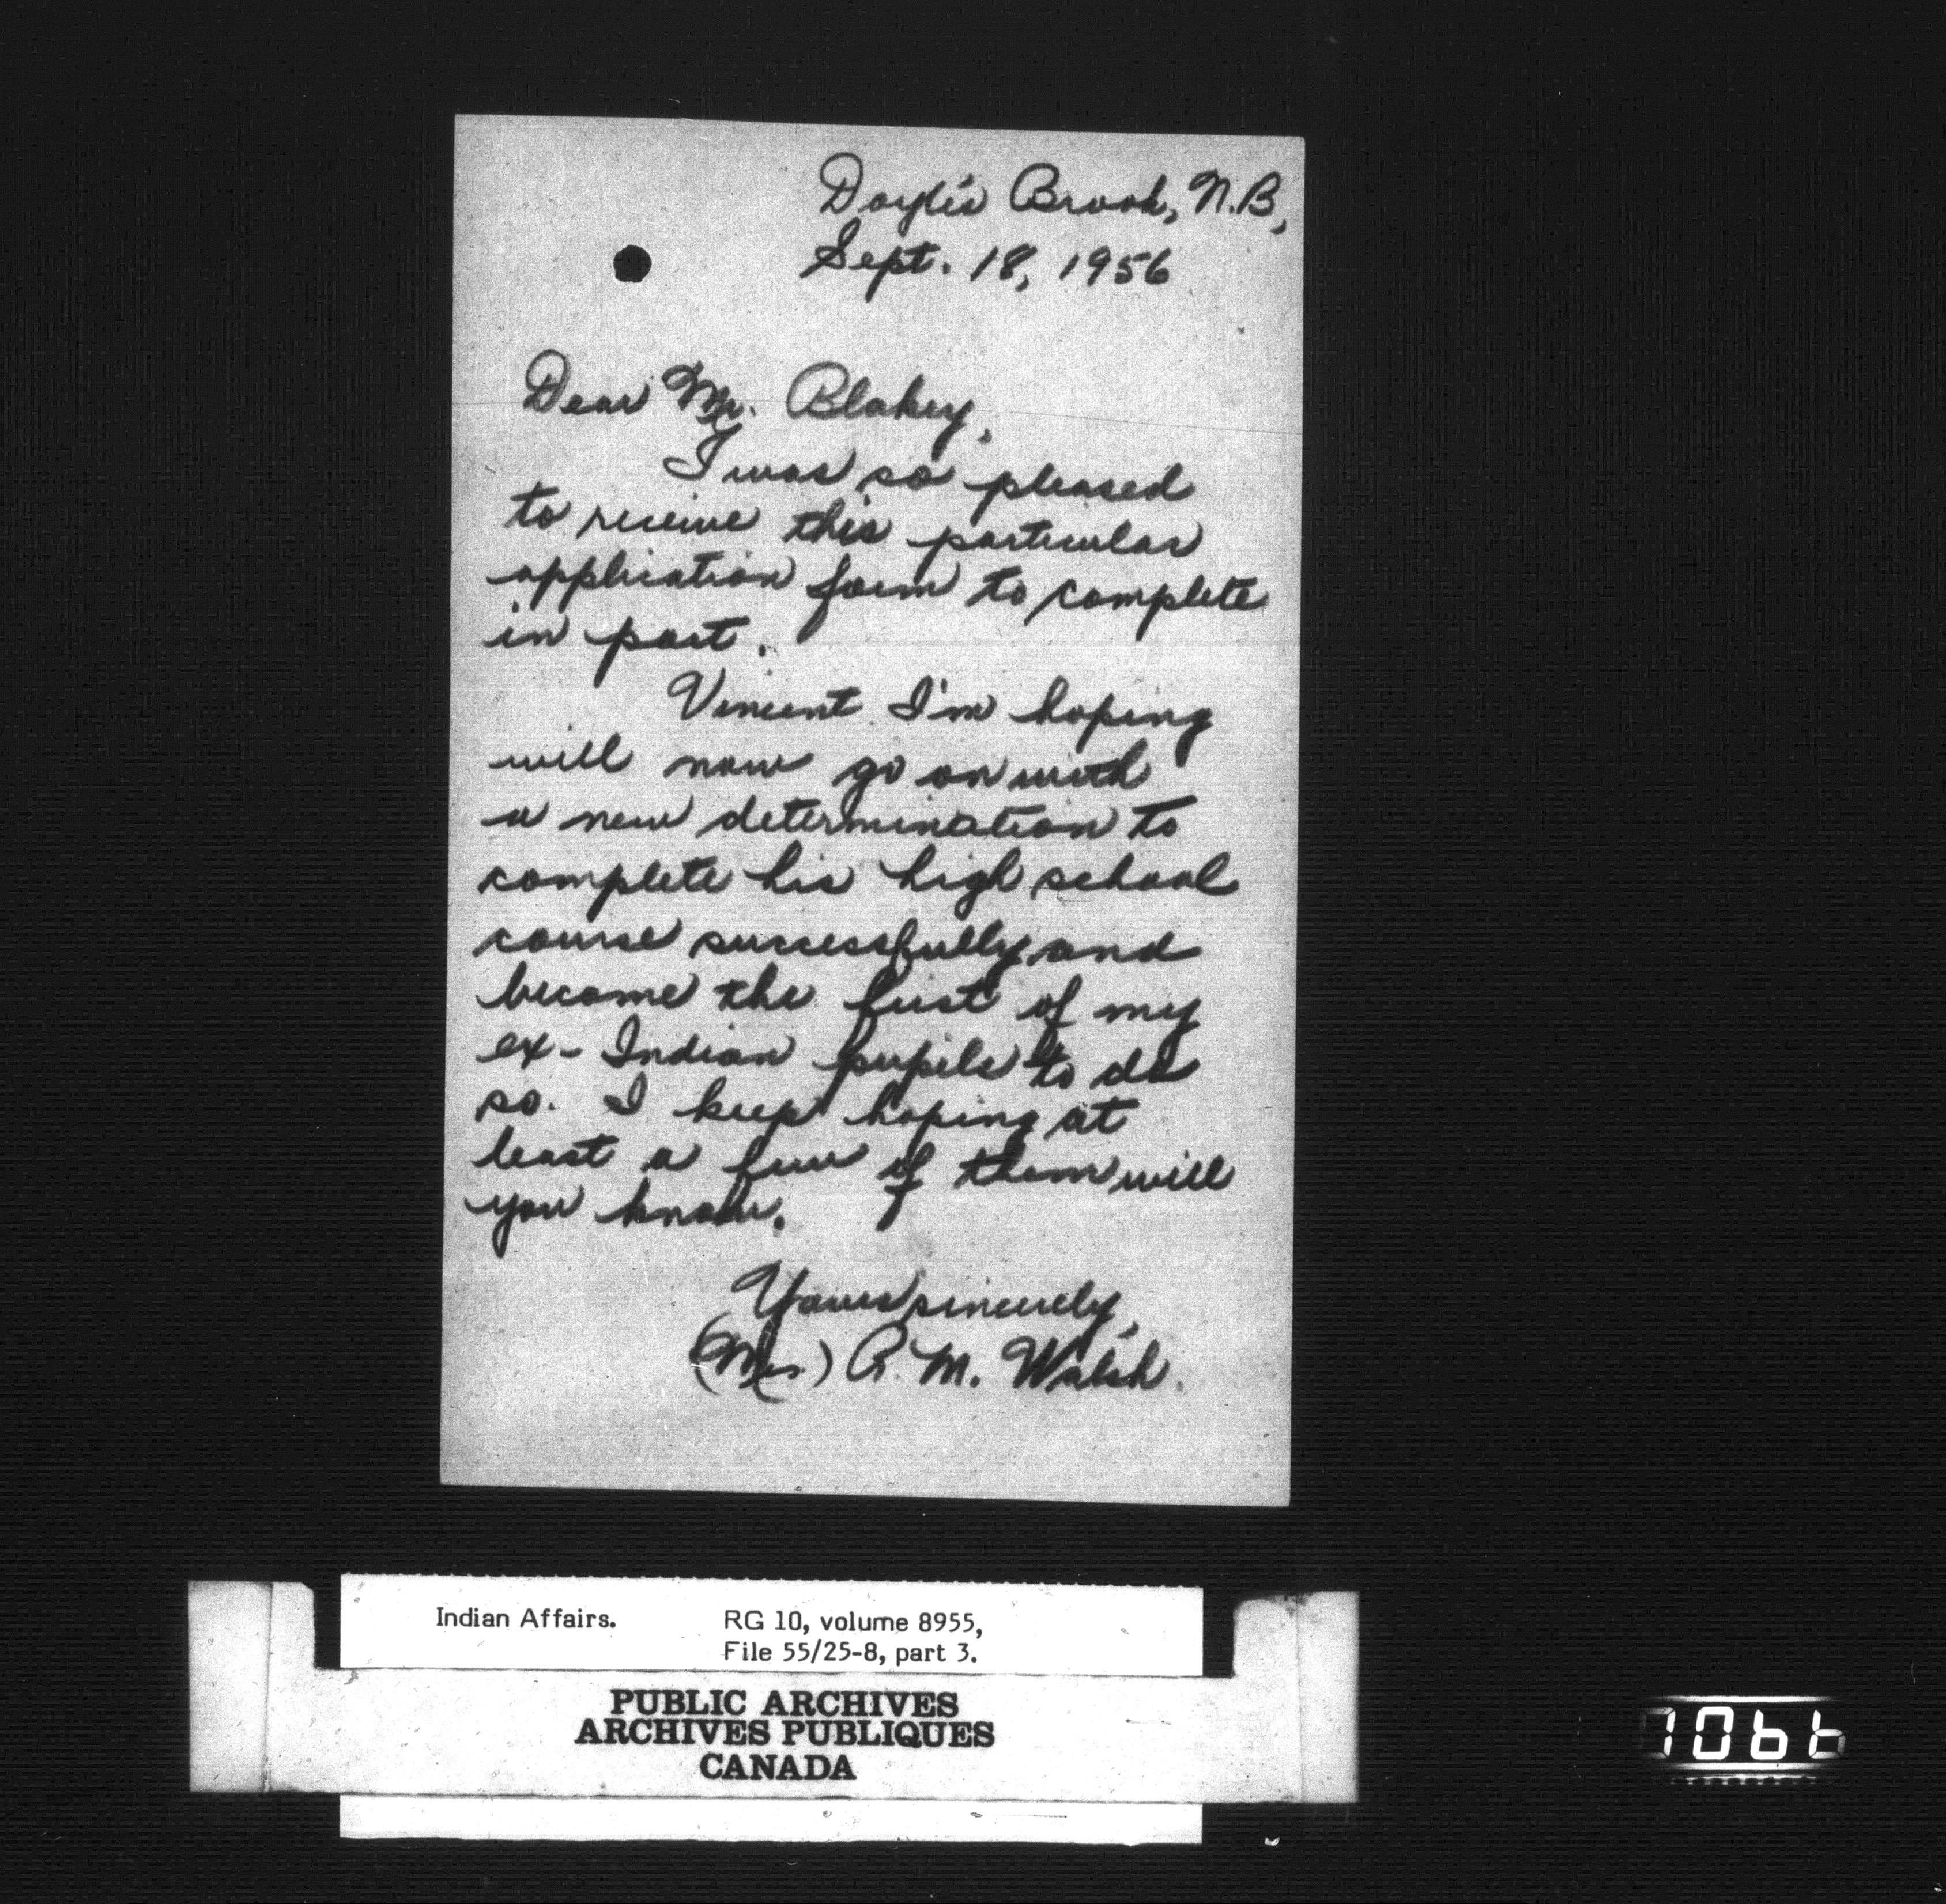 Doyle's Brook, N.B,
Sept. 18, 1956
Dear Mr. Blakey,
I was so pleased
to receive this particular
application form to complete
in part.
Vincent I'm hoping
will now go on with
a new determination to
complete his high school
course successfully and
become the first of my
ex-Indian pupils to do
so. I keep hoping at
least a few of them will
you know.
Yours sincerely,
(Mrs) A. M. Walsh.
Indian Affairs. RG 10, volume 8955,
File 55/25-8, part 3.
PUBLIC ARCHIVES
ARCHIVES PUBLIQUES
CANADA